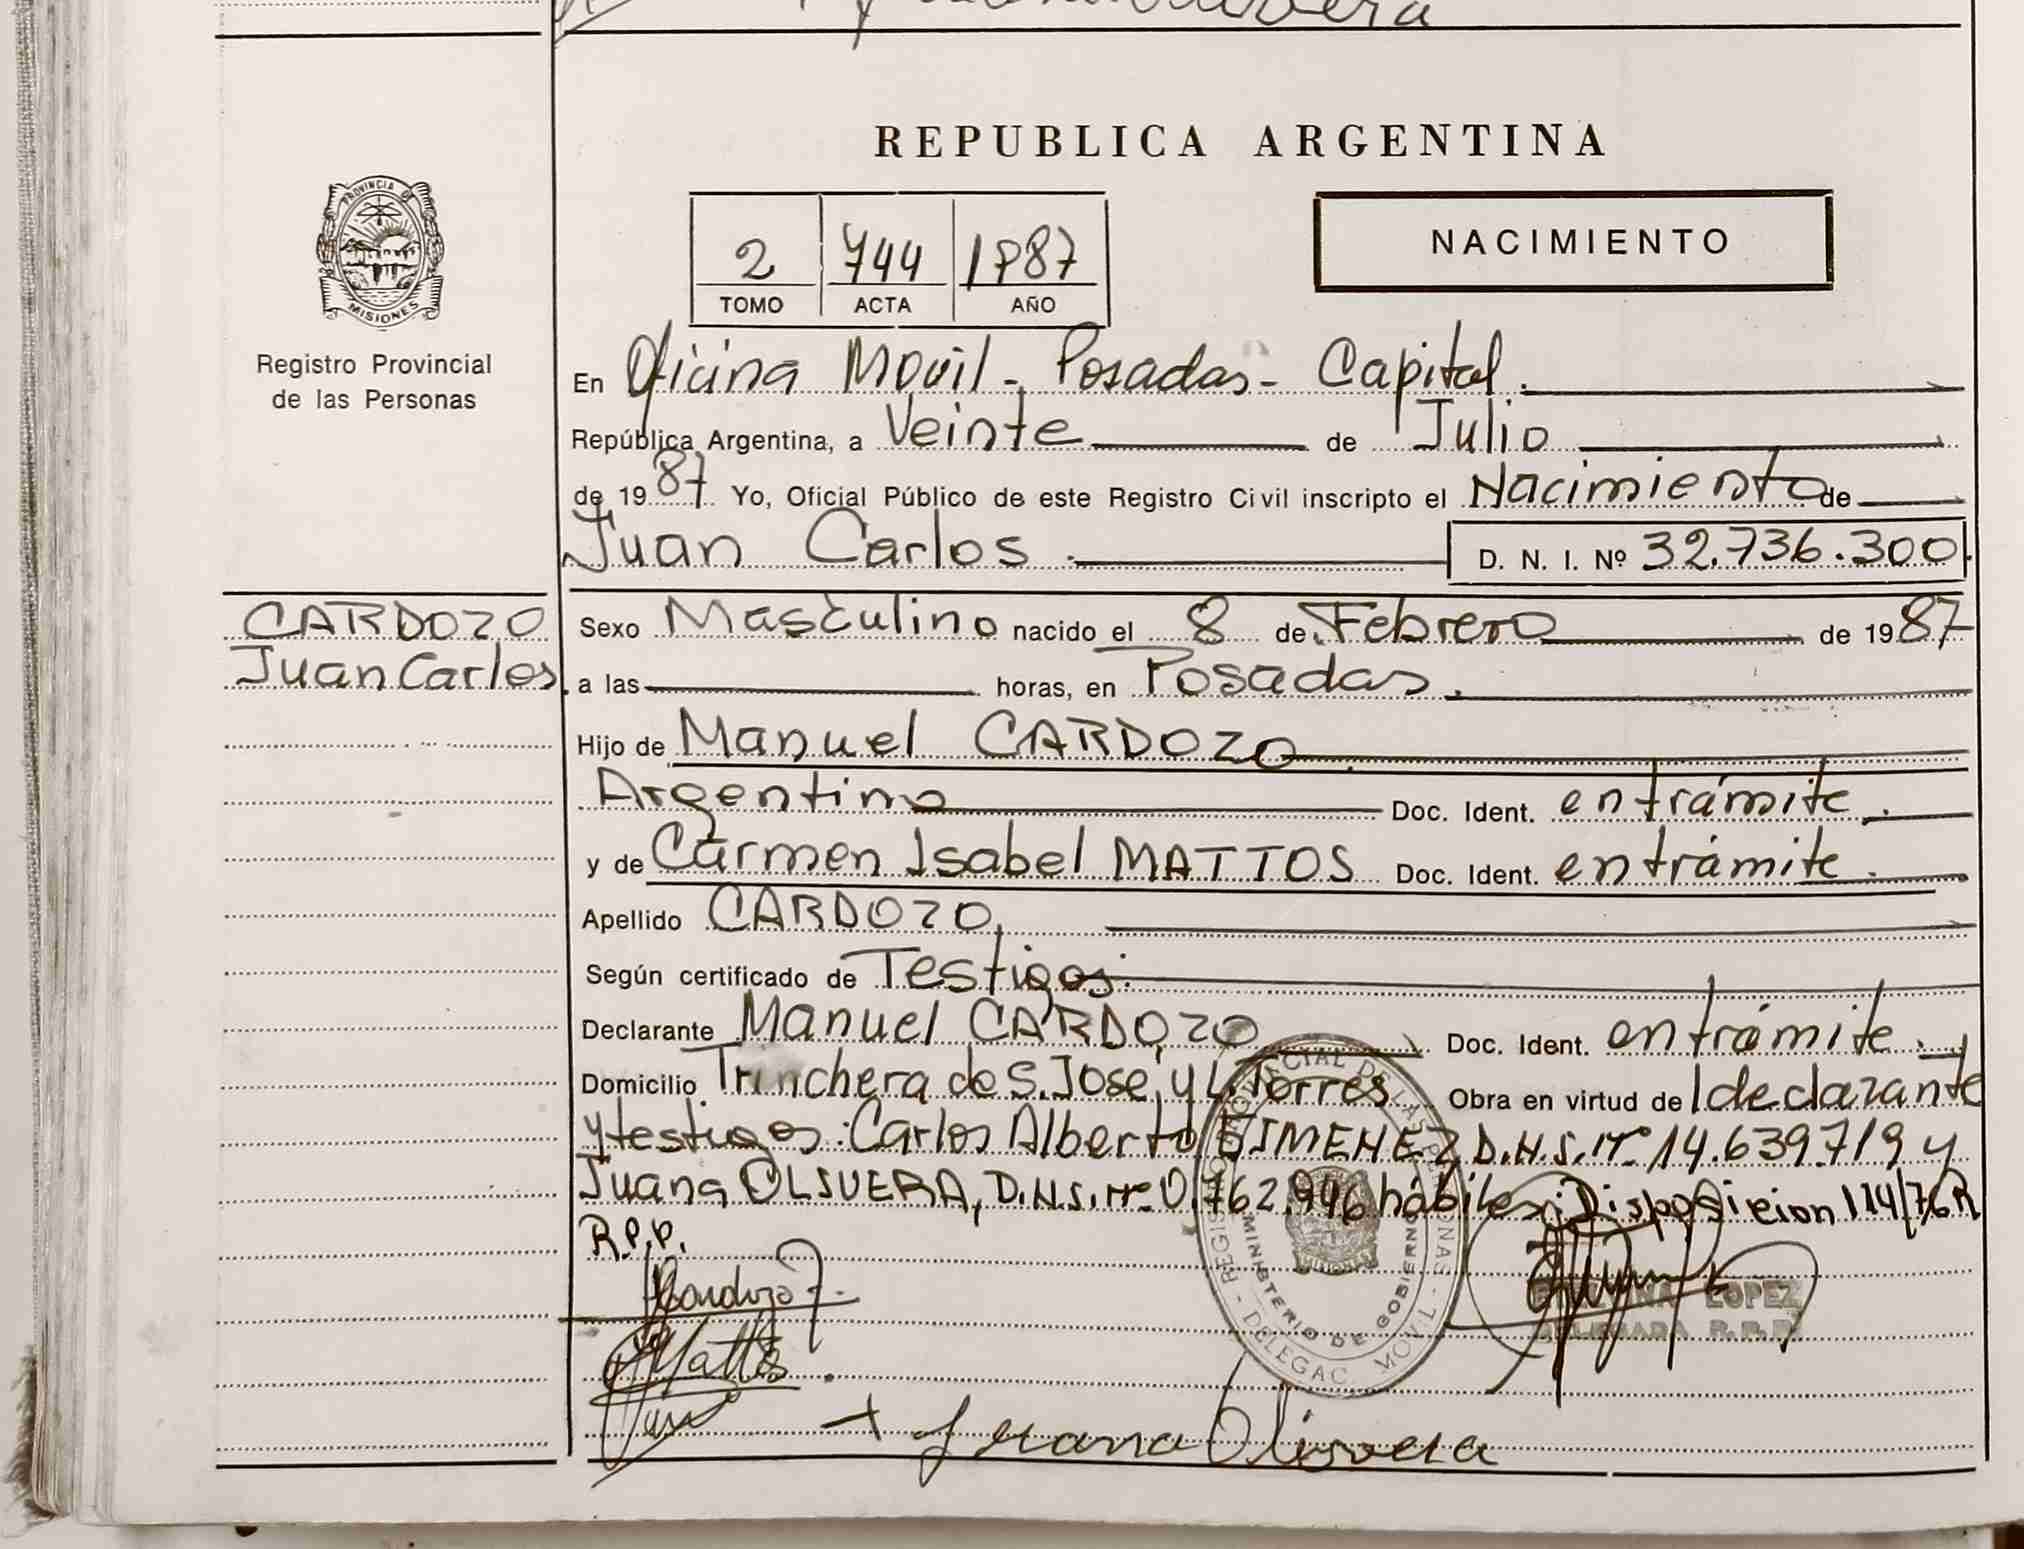 REPUBLICA ARGENTINA
NACIMIENTO
2 744 1987
TOMO ACTA AÑO
PROVINCIA DE
MISIONES
Registro Provincial
de las Personas
En Oficina Movil - Posadas - Capital.
República Argentina, a Veinte de Julio
de 1987 Yo, Oficial Público de este Registro Civil inscripto el Nacimiento de
Juan Carlos. D. N. I. Nº 32.736.300.
CARDOZO
Juan Carlos.
Sexo Masculino nacido el 8 de Febrero de 1987
a las horas, en Posadas.
Hijo de Manuel CARDOZO
Argentino Doc. Ident. en trámite.
y de Carmen Isabel MATTOS Doc. Ident. en trámite.
Apellido CARDOZO
Según certificado de Testigos.
Declarante Manuel CARDOZO Doc. Ident. en trámite.
Domicilio Trinchera de S. José y L. Torres Obra en virtud de l declarante
y testigos: Carlos Alberto GIMENEZ D.N.I. Nº 14.639.719 y
Juana OLIVERA, D.N.I. Nº 0.762.946 hábiles: Disposicion 114/76 R
R.P.P.
Cardozo
LOPEZ
DELEGADA R.P.P.
Mattos
Juana Olivera
MINISTERIO DE GOBIERNO
DELEGAC. MOVIL